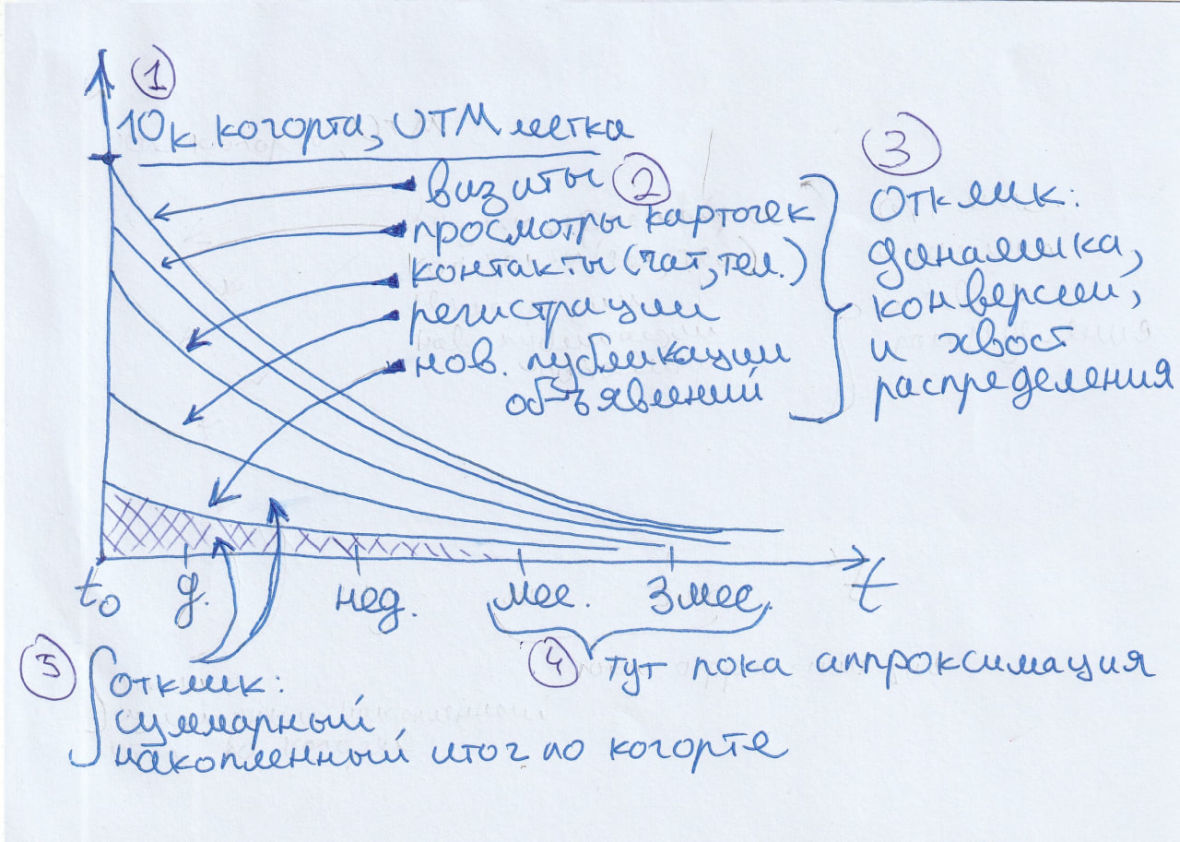 1
10к когорта, UTM метка
визиты 2
просмотры карточек
контакты (чат, тел.)
регистрации
нов. публикации
объявлений
3
Отклик:
динамика,
конверсии,
и хвост
распределения
t₀ д. нед. мес. 3 мес. t
4 тут пока аппроксимация
5 ∫ отклик:
суммарный
накопленный итог по когорте